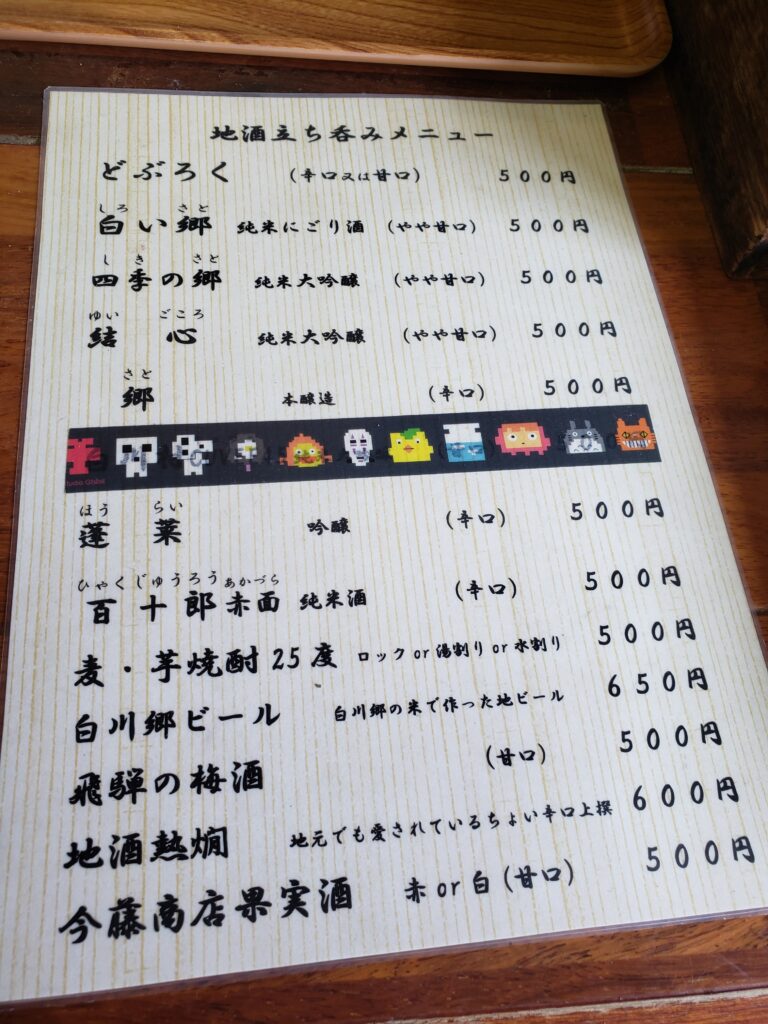 地酒立ち呑みメニュー
どぶろく (辛口又は甘口) 500円
しろ さと
白い郷 純米にごり酒 (やや甘口) 500円
し き さと
四季の郷 純米大吟醸 (やや甘口) 500円
ゆい ごころ
結心 純米大吟醸 (やや甘口) 500円
さと
郷 本醸造 (辛口) 500円
Studio Ghibli
ほう らい
蓬莱 吟醸 (辛口) 500円
ひゃくじゅうろうあかづら
百十郎赤面 純米酒 (辛口) 500円
麦・芋焼酎25度 ロックor湯割りor水割り 500円
白川郷ビール 白川郷の米で作った地ビール 650円
飛騨の梅酒 (甘口) 500円
地酒熱燗 地元でも愛されているちょい辛口上撰 600円
今藤商店果実酒 赤or白(甘口) 500円